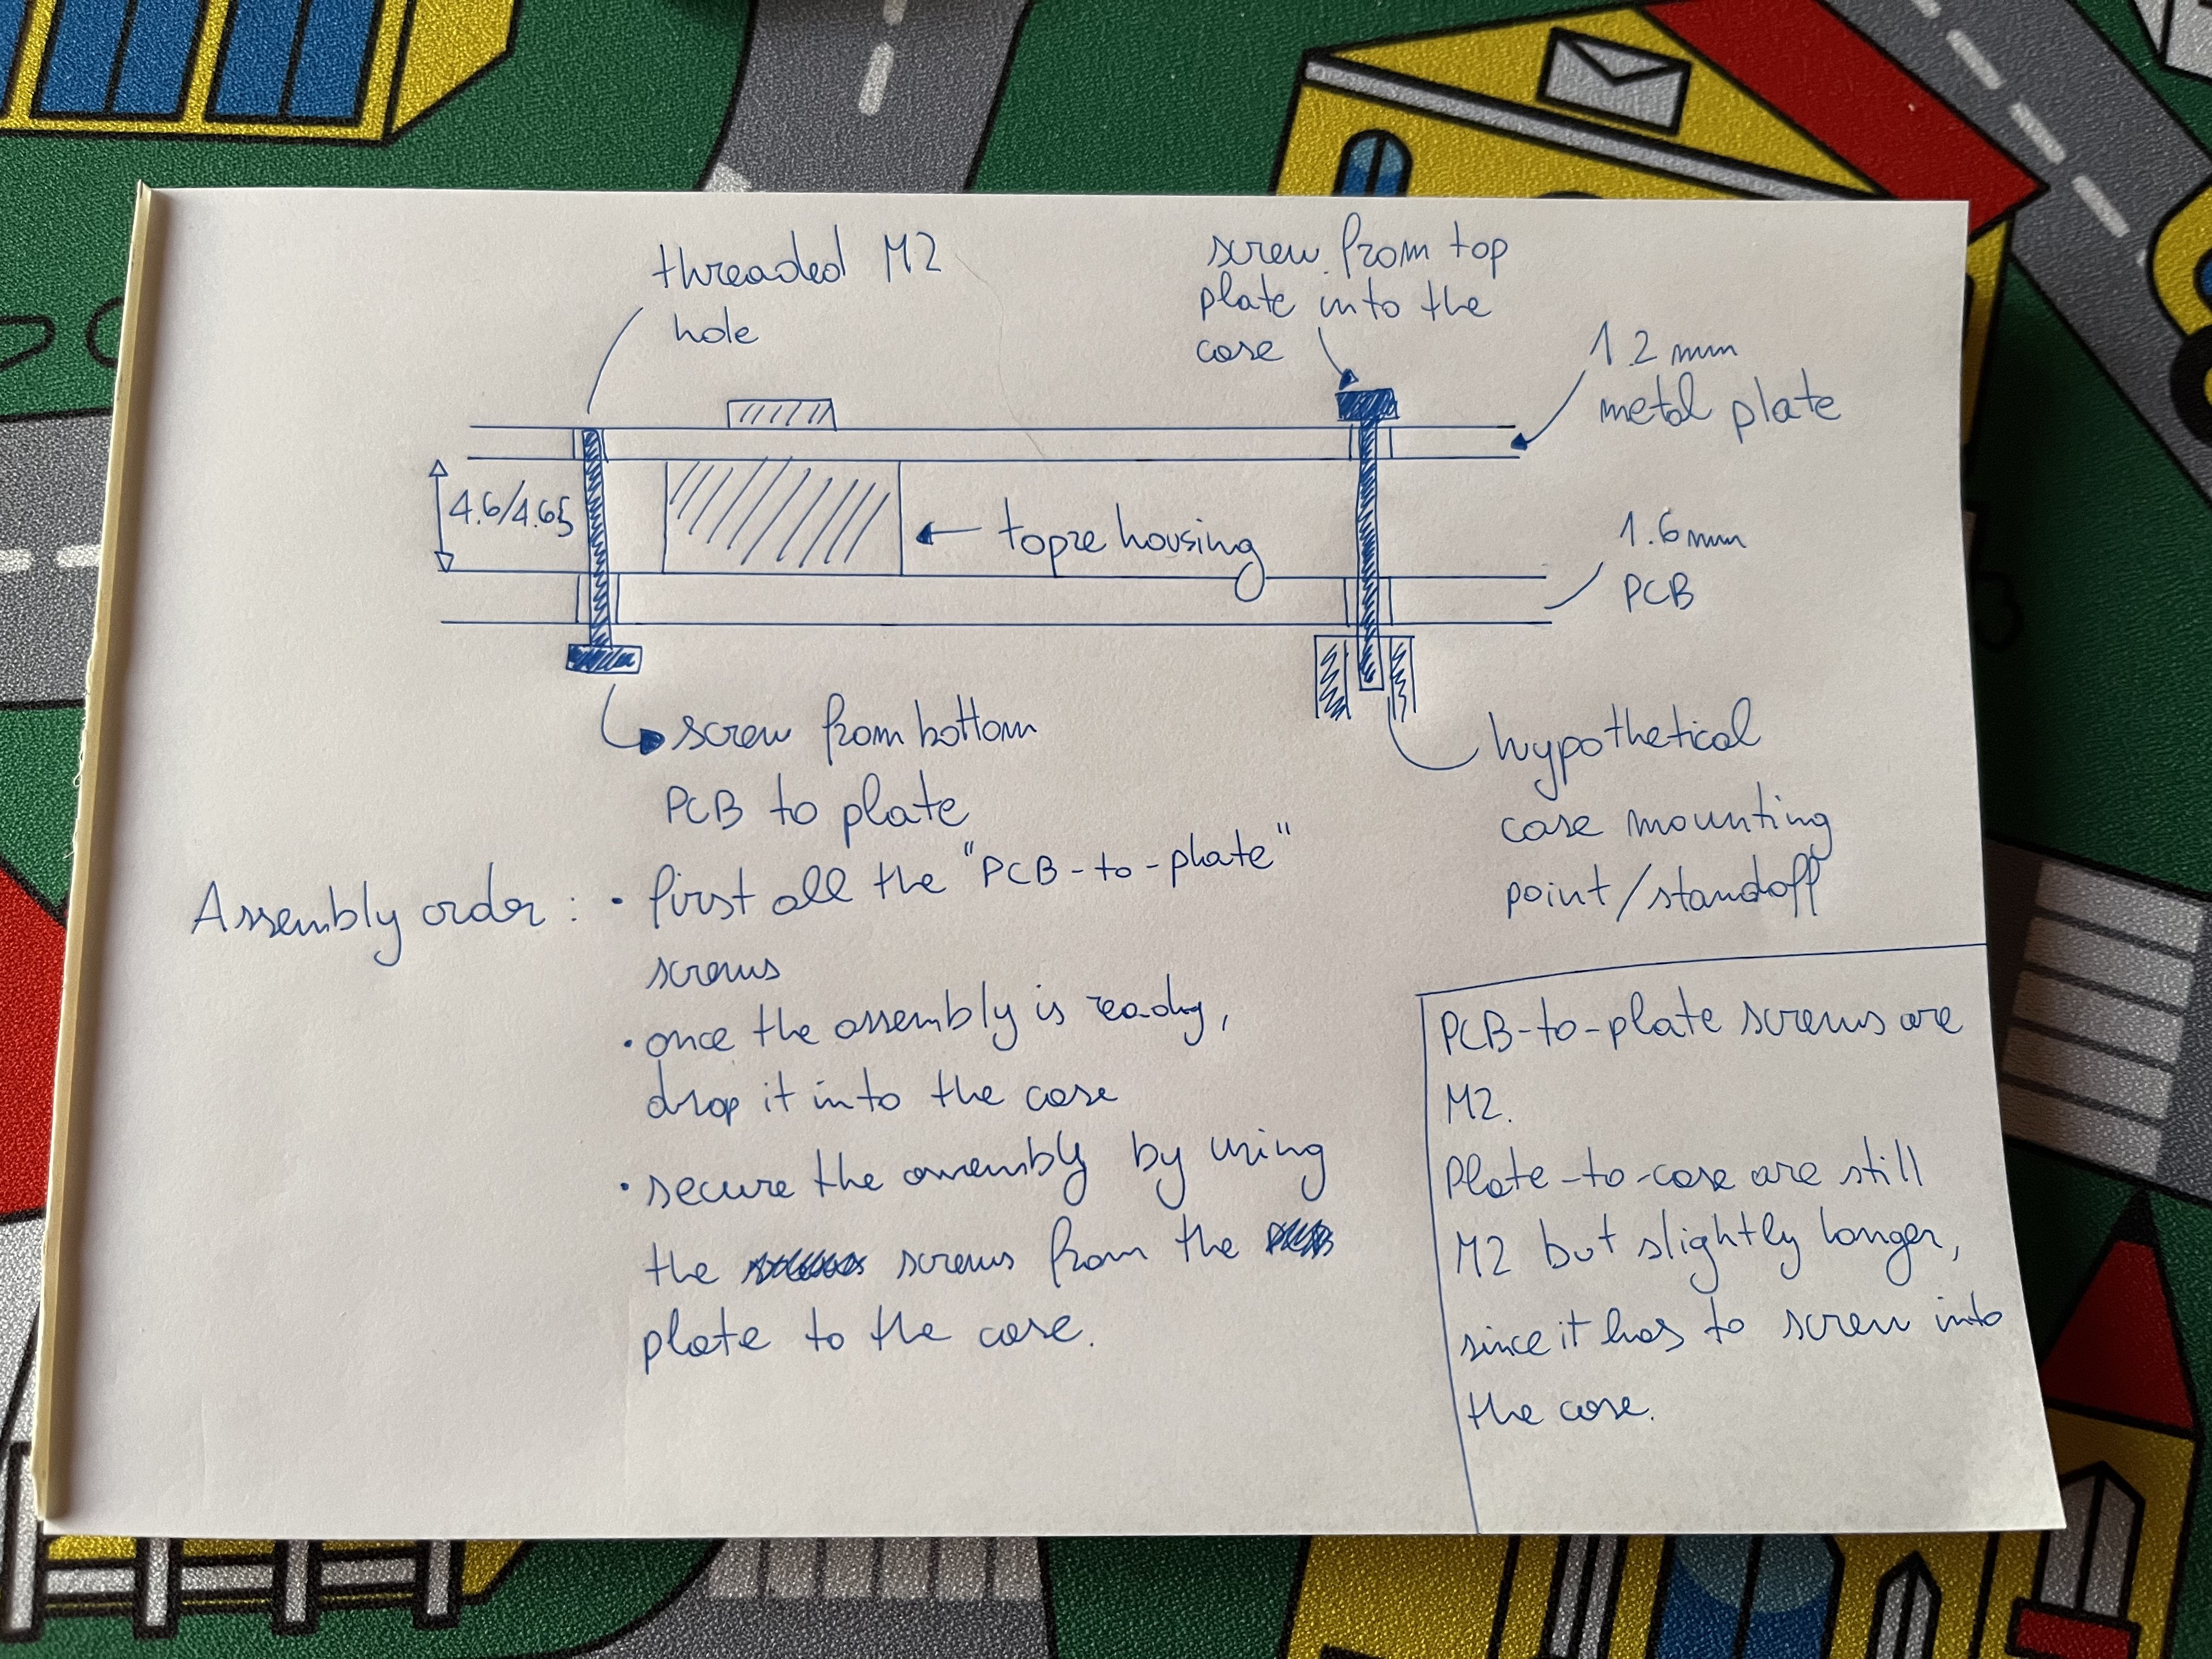 threaded M2
hole
screw from top
plate into the
case
1.2 mm
metal plate
4.6/4.65
topre housing
1.6mm
PCB
screw from bottom
PCB to plate
hypothetical
case mounting
point/standoff
Assembly order: • first all the "PCB-to-plate"
screws
• once the assembly is ready,
drop it into the case
• secure the assembly by using
the screws from the
plate to the case.
PCB-to-plate screws are
M2.
Plate-to-case are still
M2 but slightly longer,
since it has to screw into
the case.